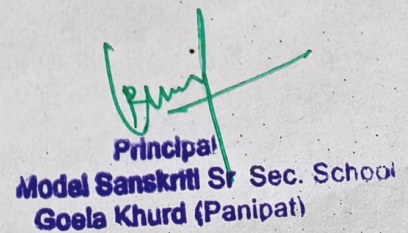 Principal
Model Sanskriti Sr Sec. School
Goela Khurd (Panipat)